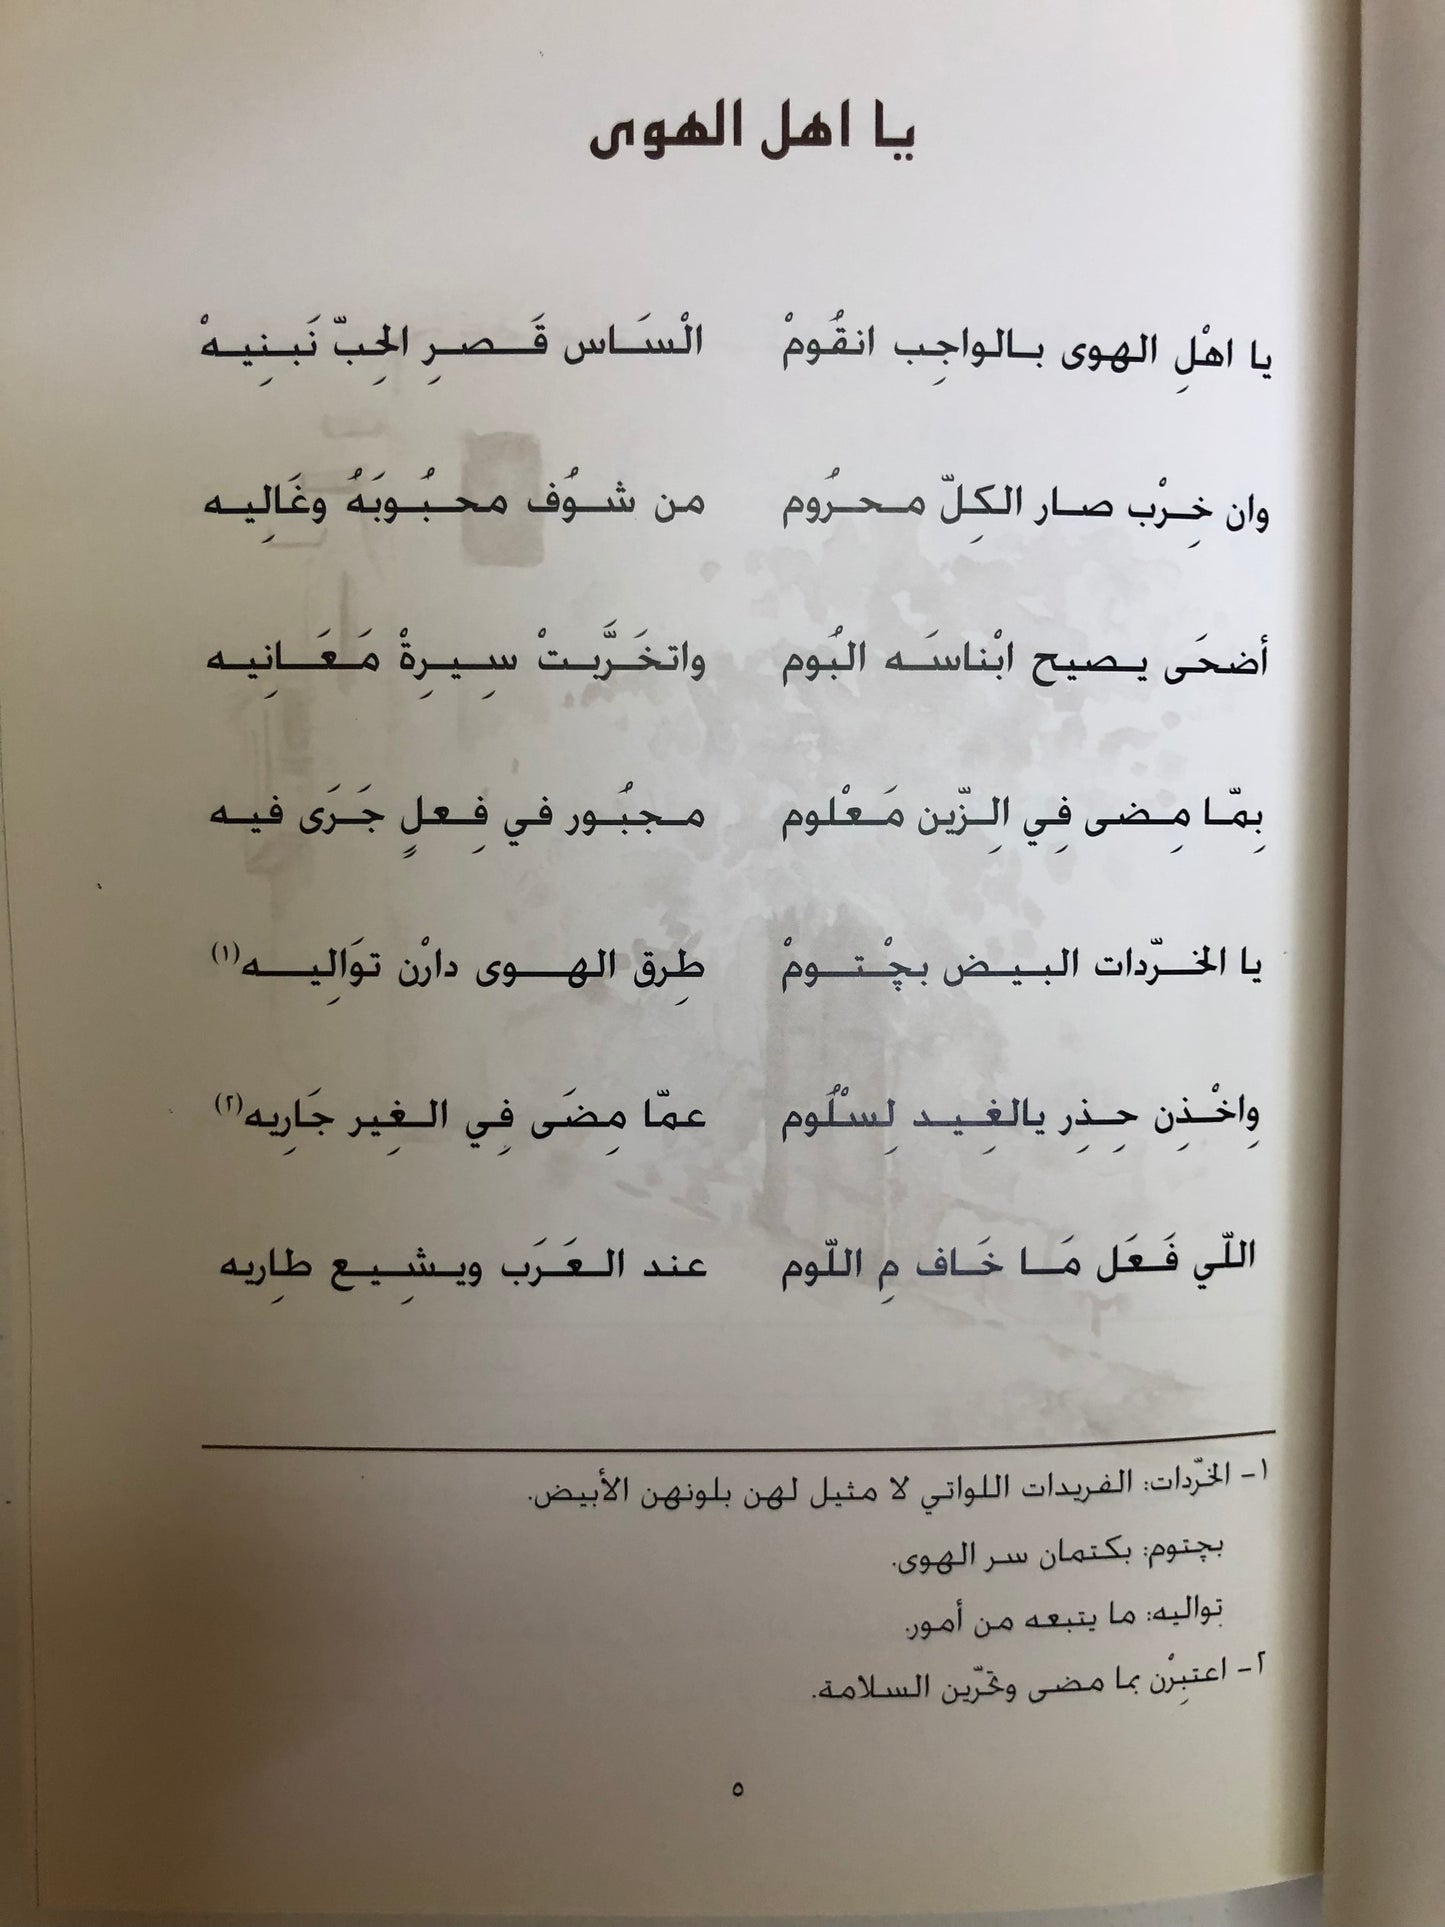 يا اهل الهوى
يا اهْلِ الهوى بالواجِب انقُومْ الْسَاس قَصرِ الحِبّ نَبنِيهْ
وان خِرْب صار الكِلّ محرُوم من شوُف محبُوبَهُ وغَالِيه
أضحَى يصيح ابْناسَه البُوم واتخَرَّبتْ سِيرِةْ مَعَانِيه
بِمّا مِضى فِي الِزّين مَعْلوم مجبُور في فِعلٍ جَرَى فيه
يا الخرّدات البيض بچْتومْ طِرق الهوى دارْن توَالِيه(١)
وِاخْذِن حِذِر يالغِيد لِسْلُوم عمّا مِضَى فِي الغِير جَارِيه(٢)
اللّي فَعَل مَا خَاف مِ اللّوم عند العَرَب ويشِيع طارِيه
١- الخرّدات: الفريدات اللواتي لا مثيل لهن بلونهن الأبيض.
بچتوم: بكتمان سر الهوى.
تواليه: ما يتبعه من أمور.
٢- اعتبِرْن بما مضى وتحّرين السلامة.
٥